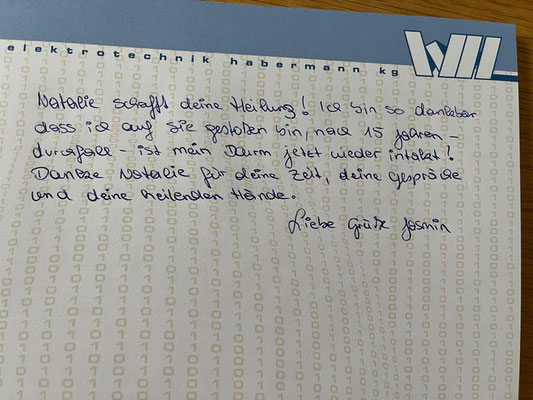 elektrotechnik habermann kg
Natalie schafft deine Heilung! Ich bin so dankbar
dass ich auf Sie gestoßen bin, nach 15 Jahren -
durchfall - ist mein Darm jetzt wieder intakt!
Danke Natalie für deine Zeit, deine Gespräche
und deine heilenden Hände.
Liebe Grüße Jasmin